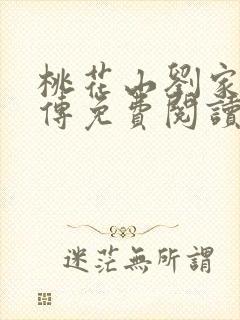 桃花山劉家
傳免費閱讀
迷茫無所謂